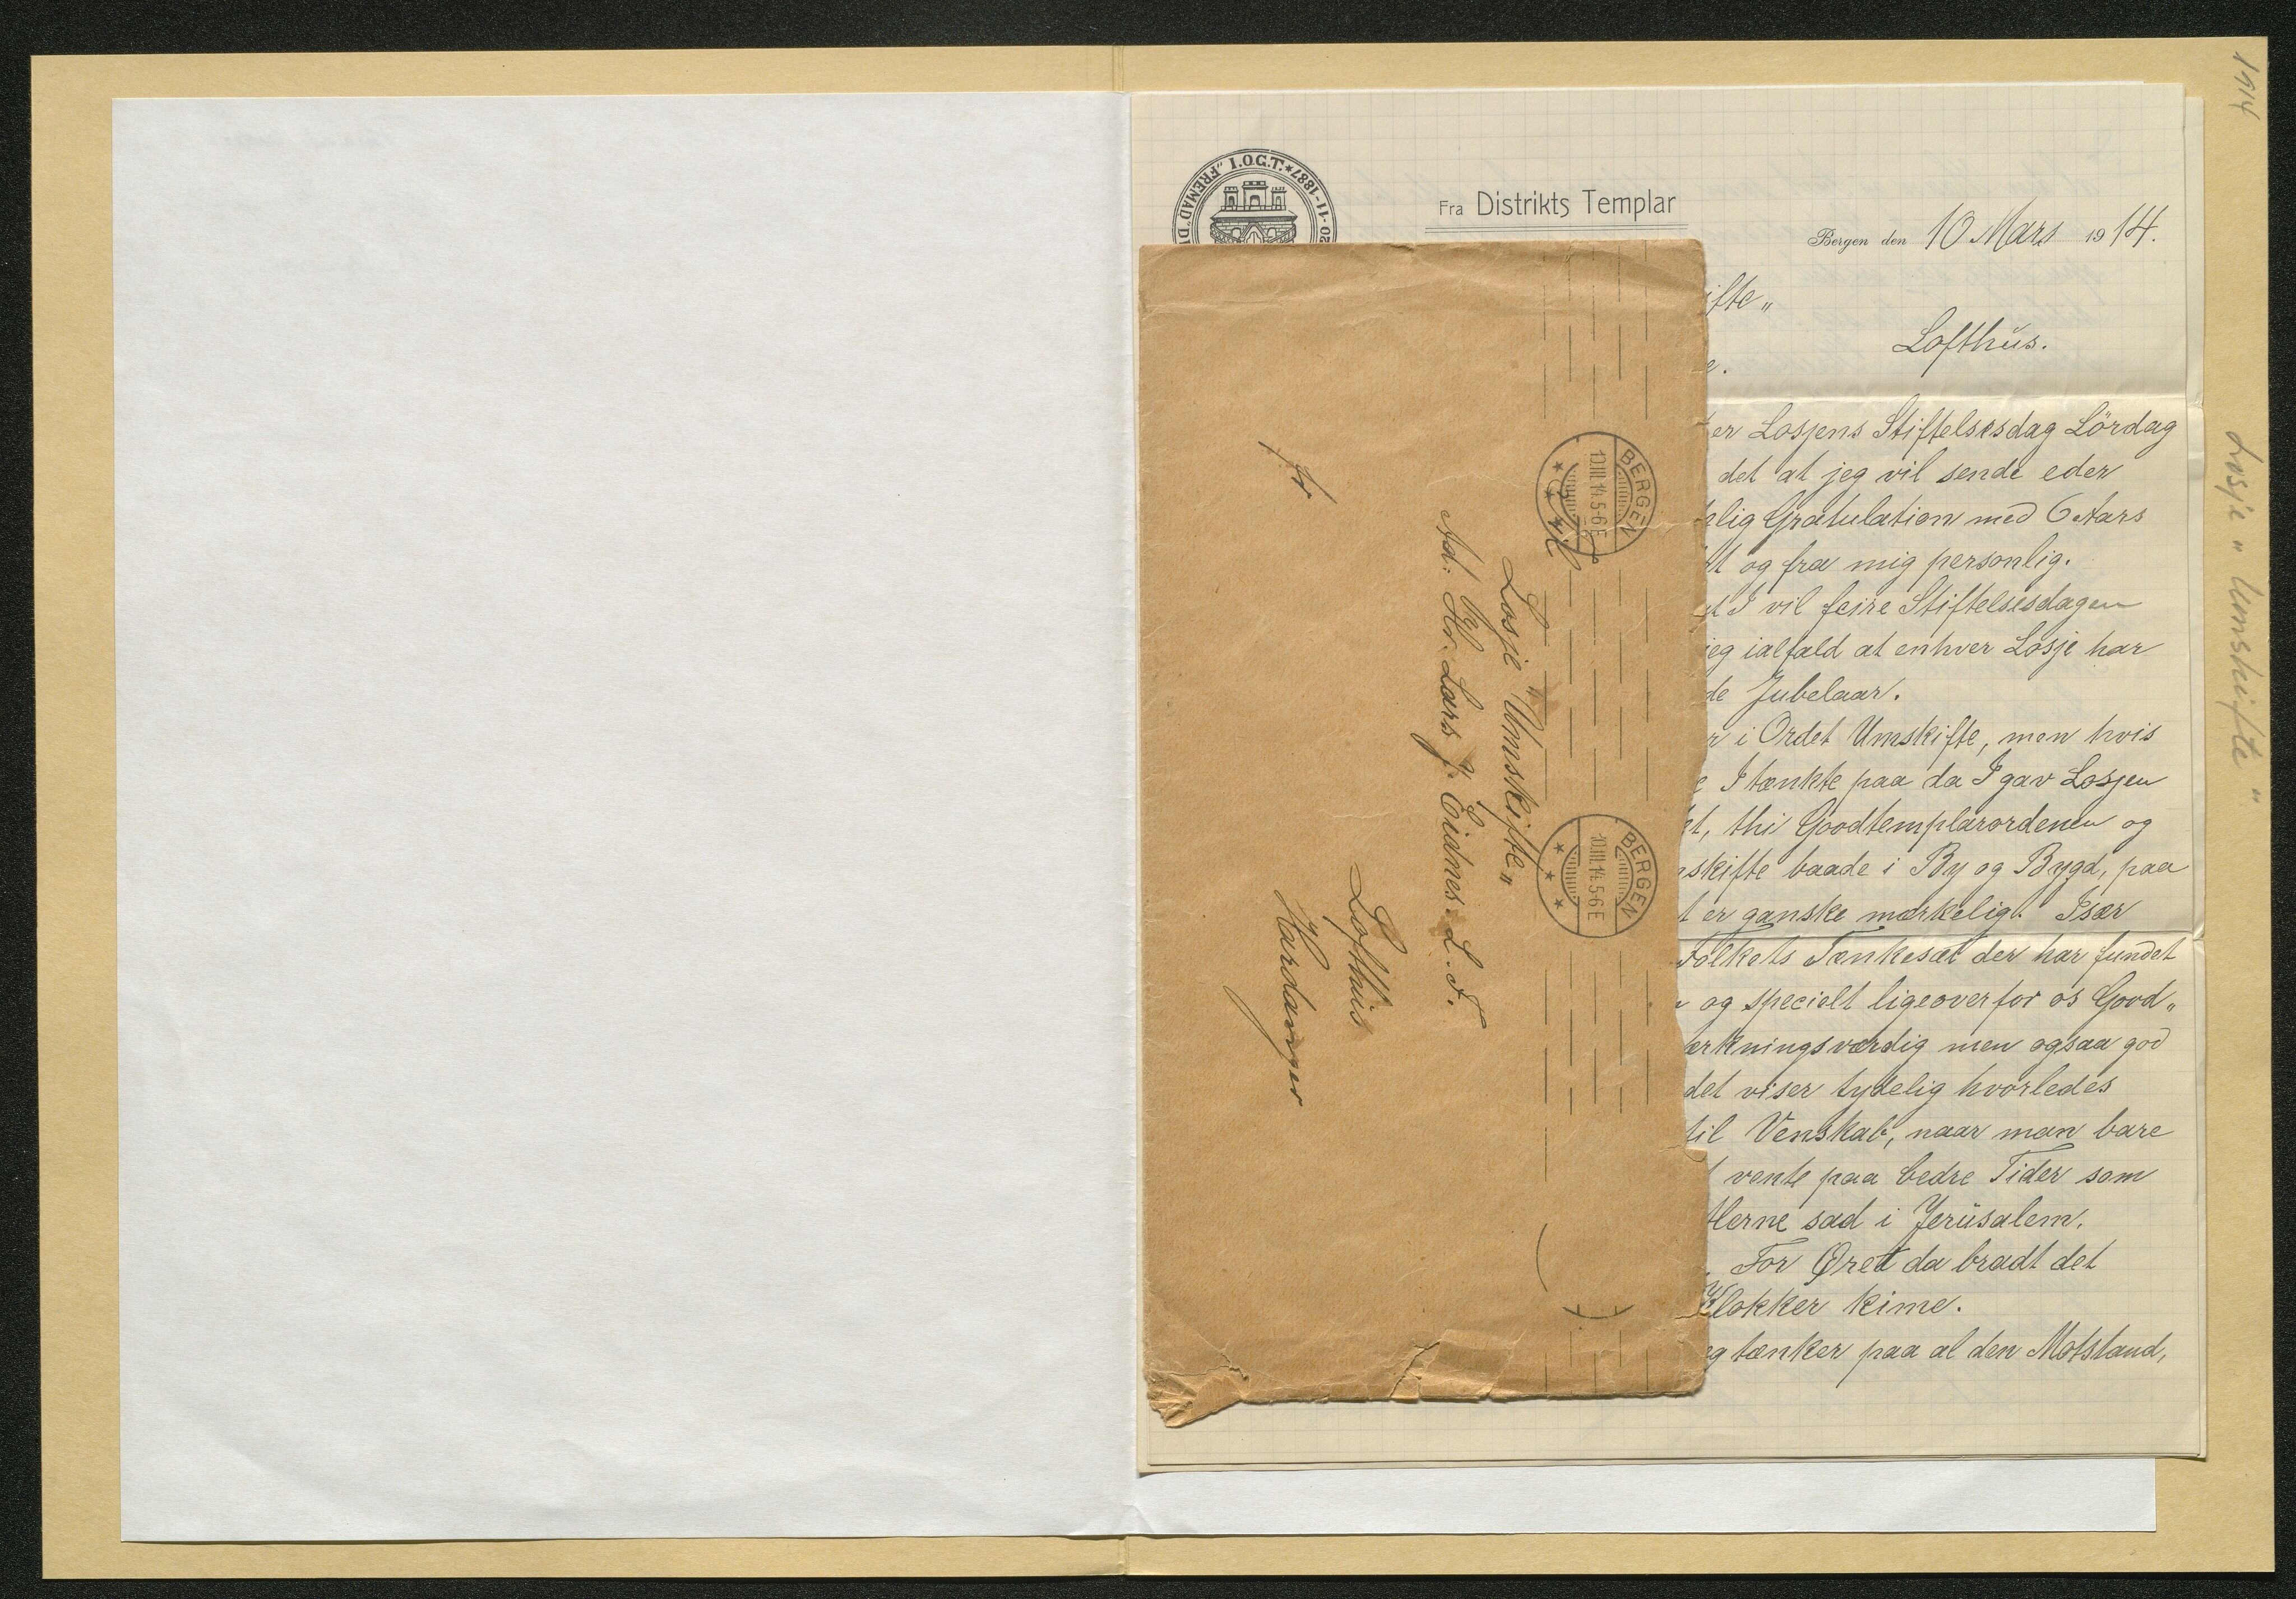 1914
Losje „Umskifte"
"FREMAD" I.O.G.T.*1887-11-20
Fra Distrikts Templar
Bergen den 10 Mars 1914.
ifte„
Lofthus.
e.
er Losjens Stiftelsesdag Lördag
det at jeg vil sende eder
lig Gratulation med 6 Aars
og fra mig personlig.
I vil feire Stiftelsesdagen
jeg ialfald at enhver Losje har
de Jubelaar.
i Ordet Umskifte, men hvis
I tænkte paa da I gav Losjen
et, thi Goodtemplarordenen og
skifte baade i By og Bygd, paa
er ganske mærkeligt. Især
Folkets Tænkesæt der har fundet
og specielt ligeoverfor os Good„
ærkningsværdig men ogsaa god
det viser tydelig hvorledes
til Venskab, naar man bare
vente paa bedre Tider som
tlerne sad i Jerusalem.
For Øret da bradt det
Klokker kime.
eg tænker paa al den Motstand,
BERGEN
10.III.14.5-6E
BERGEN
10.III.14.5-6E
Til
Losje „Umskifte„
Ad: Hr. Lars J. Eidnes. L. T.
Lofthus
Hardanger
fr